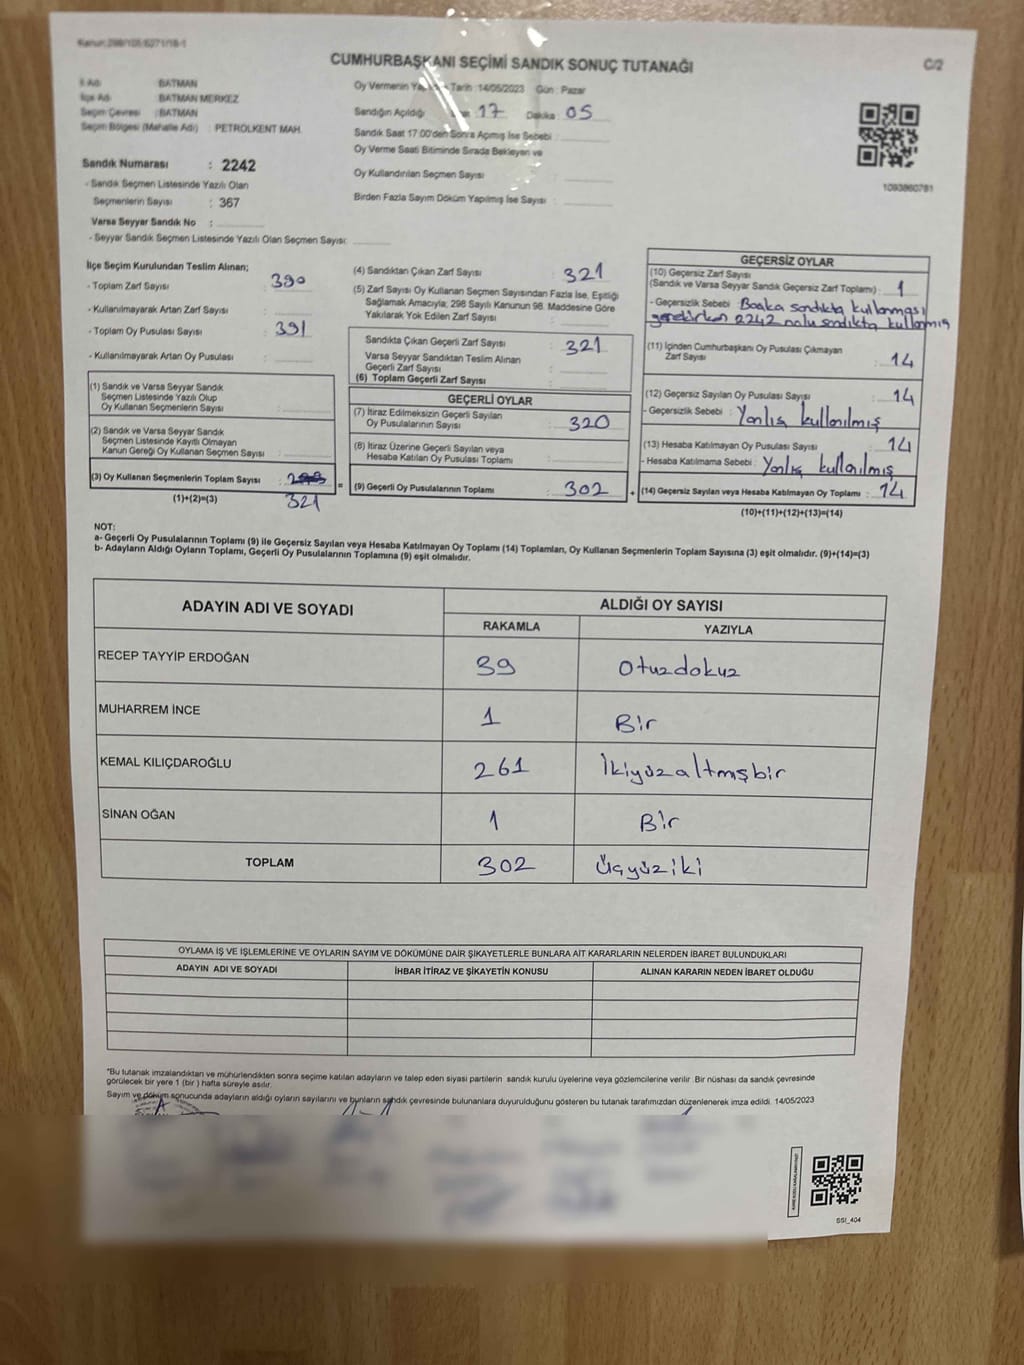 Kanun:298/105/6271/16-1
CUMHURBAŞKANI SEÇİMİ SANDIK SONUÇ TUTANAĞI
C/2
İl Adı : BATMAN
İlçe Adı : BATMAN MERKEZ
Seçim Çevresi : BATMAN
Seçim Bölgesi (Mahalle Adı) : PETROLKENT MAH.
Sandık Numarası : 2242
- Sandık Seçmen Listesinde Yazılı Olan
Seçmenlerin Sayısı : 367
Varsa Seyyar Sandık No :
- Seyyar Sandık Seçmen Listesinde Yazılı Olan Seçmen Sayısı:
Oy Vermenin Tarih :14/05/2023 Gün : Pazar
Sandığın Açıldığı 17 Dakika : 05
Sandık Saat 17.00'den Sonra Açılmış İse Sebebi :
Oy Verme Saati Bitiminde Sırada Bekleyen ve
Oy Kullandırılan Seçmen Sayısı :
Birden Fazla Sayım Döküm Yapılmış İse Sayısı :
1093860781
İlçe Seçim Kurulundan Teslim Alınan;
- Toplam Zarf Sayısı : 390
- Kullanılmayarak Artan Zarf Sayısı :
- Toplam Oy Pusulası Sayısı : 391
- Kullanılmayarak Artan Oy Pusulası :
(1) Sandık ve Varsa Seyyar Sandık
Seçmen Listesinde Yazılı Olup
Oy Kullanan Seçmenlerin Sayısı :
(2) Sandık ve Varsa Seyyar Sandık
Seçmen Listesinde Kayıtlı Olmayan
Kanun Gereği Oy Kullanan Seçmen Sayısı :
(3) Oy Kullanan Seçmenlerin Toplam Sayısı :
(1)+(2)=(3) 321
(4) Sandıktan Çıkan Zarf Sayısı : 321
(5) Zarf Sayısı Oy Kullanan Seçmen Sayısından Fazla İse, Eşitliği
Sağlamak Amacıyla; 298 Sayılı Kanunun 98. Maddesine Göre
Yakılarak Yok Edilen Zarf Sayısı :
Sandıkta Çıkan Geçerli Zarf Sayısı : 321
Varsa Seyyar Sandıktan Teslim Alınan
Geçerli Zarf Sayısı :
(6) Toplam Geçerli Zarf Sayısı :
GEÇERLİ OYLAR
(7) İtiraz Edilmeksizin Geçerli Sayılan
Oy Pusulalarının Sayısı : 320
(8) İtiraz Üzerine Geçerli Sayılan veya
Hesaba Katılan Oy Pusulası Toplamı :
= (9) Geçerli Oy Pusulalarının Toplamı : 302
GEÇERSİZ OYLAR
(10) Geçersiz Zarf Sayısı
(Sandık ve Varsa Seyyar Sandık Geçersiz Zarf Toplamı) : 1
- Geçersizlik Sebebi : Başka sandıkta kullanması
gerekirken 2242 nolu sandıkta kullanmış
(11) İçinden Cumhurbaşkanı Oy Pusulası Çıkmayan
Zarf Sayısı : 14
(12) Geçersiz Sayılan Oy Pusulası Sayısı : 14
- Geçersizlik Sebebi : Yanlış kullanılmış
(13) Hesaba Katılmayan Oy Pusulası Sayısı : 14
- Hesaba Katılmama Sebebi : Yanlış kullanılmış
+ (14) Geçersiz Sayılan veya Hesaba Katılmayan Oy Toplamı : 14
(10)+(11)+(12)+(13)=(14)
NOT:
a- Geçerli Oy Pusulalarının Toplamı (9) ile Geçersiz Sayılan veya Hesaba Katılmayan Oy Toplamı (14) Toplamları, Oy Kullanan Seçmenlerin Toplam Sayısına (3) eşit olmalıdır. (9)+(14)=(3)
b- Adayların Aldığı Oyların Toplamı, Geçerli Oy Pusulalarının Toplamına (9) eşit olmalıdır.
ADAYIN ADI VE SOYADI
ALDIĞI OY SAYISI
RAKAMLA YAZIYLA
RECEP TAYYİP ERDOĞAN 39 Otuzdokuz
MUHARREM İNCE 1 Bir
KEMAL KILIÇDAROĞLU 261 İkiyüzaltmışbir
SİNAN OĞAN 1 Bir
TOPLAM 302 Üçyüziki
OYLAMA İŞ VE İŞLEMLERİNE VE OYLARIN SAYIM VE DÖKÜMÜNE DAİR ŞİKAYETLERLE BUNLARA AİT KARARLARIN NELERDEN İBARET BULUNDUKLARI
ADAYIN ADI VE SOYADI İHBAR İTİRAZ VE ŞİKAYETİN KONUSU ALINAN KARARIN NEDEN İBARET OLDUĞU
*Bu tutanak imzalandıktan ve mühürlendikten sonra seçime katılan adayların ve talep eden siyasi partilerin sandık kurulu üyelerine veya gözlemcilerine verilir .Bir nüshası da sandık çevresinde
görülecek bir yere 1 (bir ) hafta süreyle asılır.
Sayım ve döküm sonucunda adayların aldığı oyların sayılarını ve bunların sandık çevresinde bulunanlara duyurulduğunu gösteren bu tutanak tarafımızdan düzenlenerek imza edildi. 14/05/2023
SSI_404